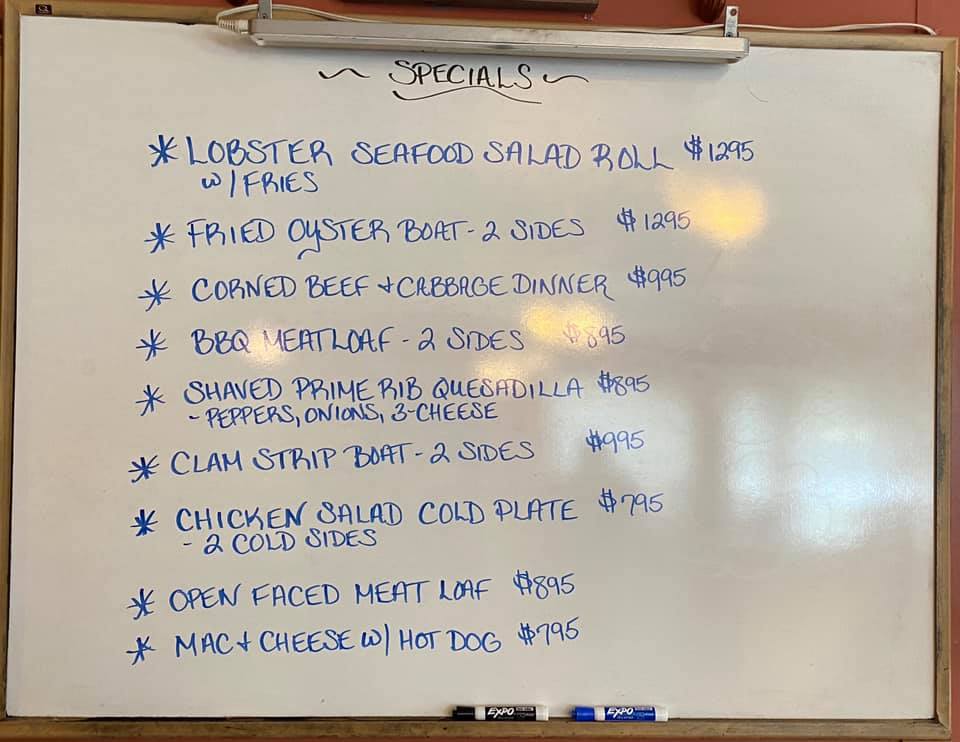 ~ SPECIALS ~
* LOBSTER SEAFOOD SALAD ROLL $1295
W/ FRIES
* FRIED OYSTER BOAT - 2 SIDES $1295
* CORNED BEEF + CABBAGE DINNER $995
* BBQ MEATLOAF - 2 SIDES $895
* SHAVED PRIME RIB QUESADILLA $895
- PEPPERS, ONIONS, 3-CHEESE
* CLAM STRIP BOAT - 2 SIDES $995
* CHICKEN SALAD COLD PLATE $795
- 2 COLD SIDES
* OPEN FACED MEAT LOAF $895
* MAC + CHEESE W/ HOT DOG $795
EXPO EXPO